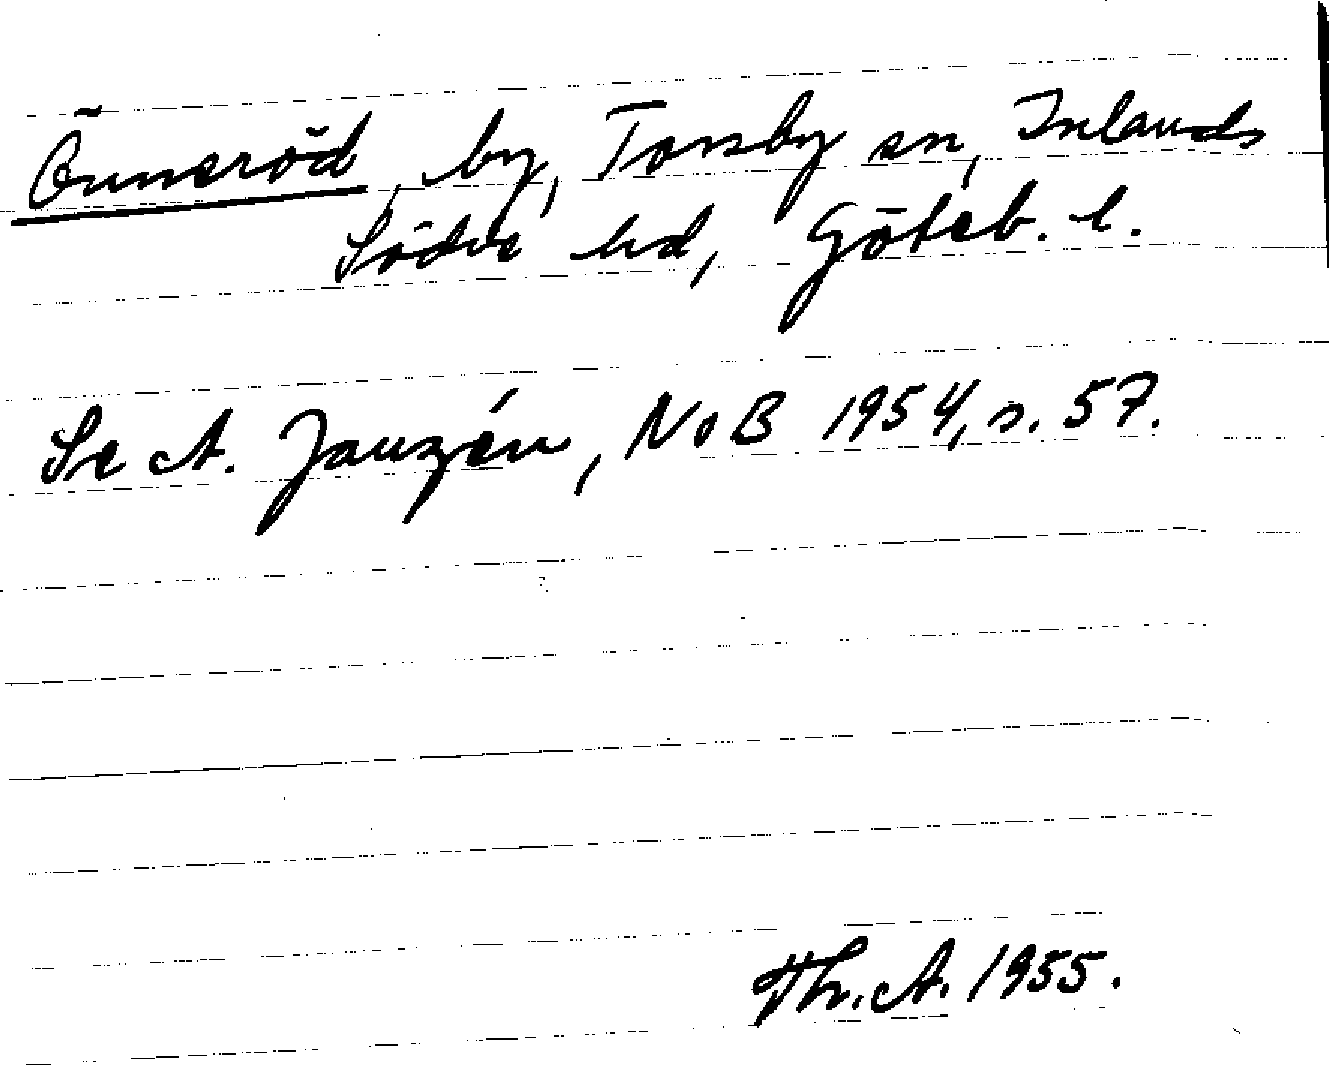 Önneröd, by, Torsby sn, Inlands
Södre hd, Göteb. l.
Se A. Janzén, NoB 1954, s. 57.
Th. A. 1955.